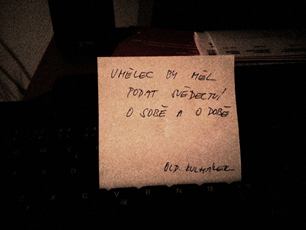 UMĚLEC BY MĚL
PODAT SVĚDECTVÍ
O SOBĚ A O DOBĚ
OLD. KULHÁNEK